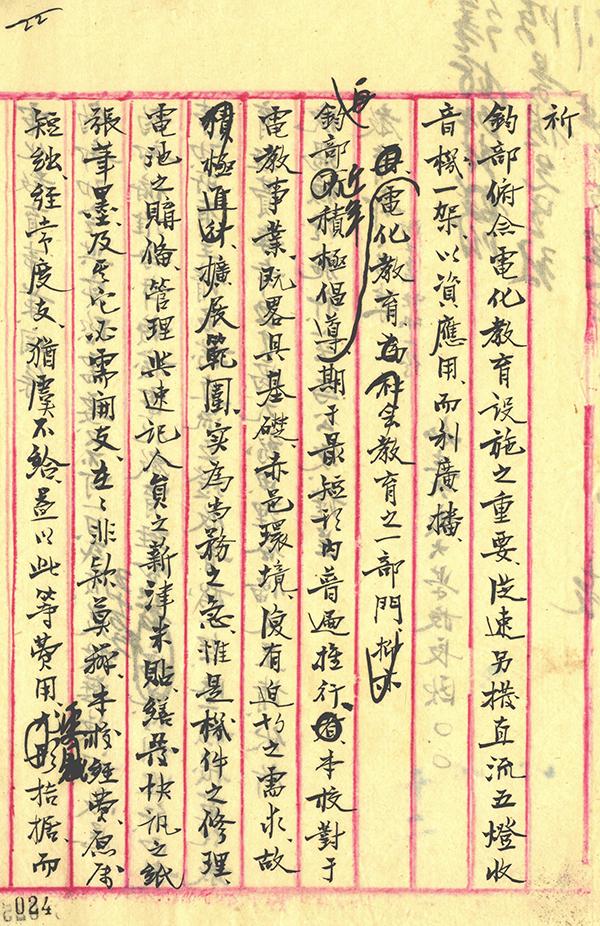 祈
鈞部俯念電化教育設施之重要、從速另撥直流五燈收
音機一架、以資應用、而利廣播、
再電化教育為社會教育之一部門
鈞部近年積極倡導、期于最短期內普遍推行、本校對于
電教事業、既畧具基礎、赤邑環境、復有迫切之需求、故
積極進行、擴展範圍、实為当務之急、惟是機件之修理、
電池之購備、管理與速記人員之薪津米貼、繕發快訊之紙
張筆墨、及其它必需開支、在在非款莫辦、本校經費、原屬
短絀、經常度支、猶虞不給、益以此等費用、拮据、而
22
024